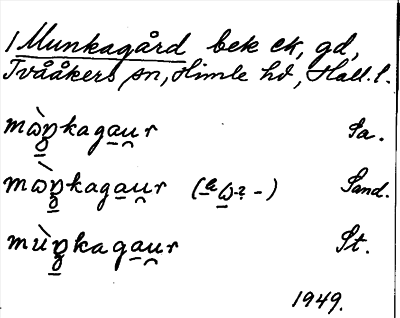 1 Munkagård bek ek, gd,
Tvååkers sn, Himle hd, Hall. l.
mὼŋkagau̯r Sa.
mὼŋkagau̯r Sand.
mùŋkagau̯r St.
1949.